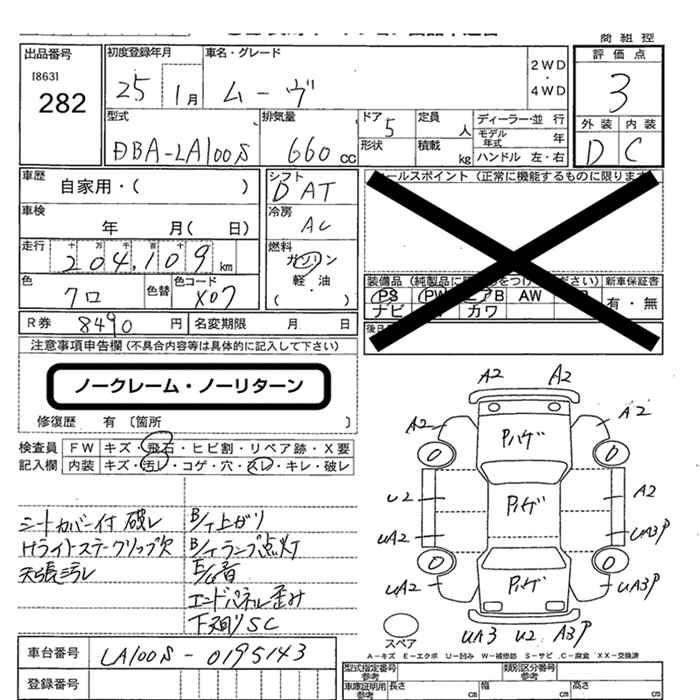 商組控
出品番号
[863]
282
初度登録年月
25 1月
車名・グレード
ムーヴ
2WD
・
4WD
評価点
3
型式
DBA-LA100S
排気量
660cc
ドア 5
形状
定員 人
積載 kg
ディーラー・並 行
モデル年式 年
ハンドル 左・右
外装 内装
D C
車歴
自家用・( )
シフト
DAT
車検
年 月( 日)
冷房
AC
走行
十 万 千 百 十
204,109 km
燃料
ガソリン
軽油
( )
色
クロ
色替
色コード
X07
R券 8490 円
名変期限 月 日
セールスポイント (正常に機能するものに限ります)
新車保証書
有・無
PS PW エアB AW
ナビ カワ
注意事項申告欄 (不具合内容等は具体的に記入して下さい)
ノークレーム・ノーリターン
修復歴 有 〔箇所 〕
検査員
記入欄
FW キズ・飛石・ヒビ割・リペア跡・X要
内装 キズ・汚レ・コゲ・穴・スレ・キレ・破レ
シートカバー付 破レ
Hライトステークリップ欠
天張汚レ
B/T上がり
B/Tランプ点灯
E/G音
エンドパネル歪み
下廻りSC
A2 A2
A2 A2
Pハゲ
U2 A2
Pハゲ
UA2 UA3P
Pハゲ
UA2 UA3P
UA3 U2 A3P
スペア
A-キズ E-エクボ U-凹み W-補修跡 S-サビ C-腐食 XX-交換済
車台番号 LA100S-0195143
登録番号
型式指定番号 参考
類別区分番号 参考
車庫証明用 参考
長さ cm 幅 cm 高さ cm